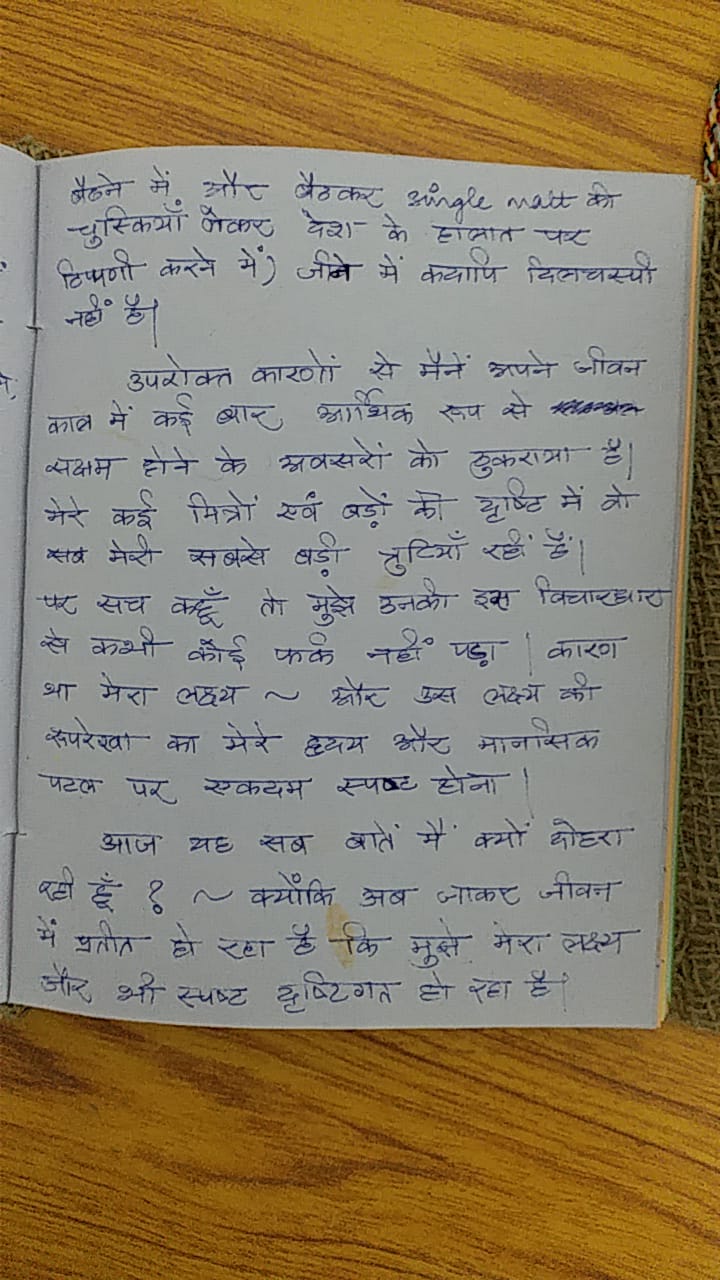 बैठने में और बैठकर single malt की
चुस्कियाँ लेकर देश के हालात पर
टिप्पणी करने में) जीने में कदापि दिलचस्पी
नहीं है|
उपरोक्त कारणों से मैनें अपने जीवन
काल में कई बार, आर्थिक रूप से
सक्षम होने के अवसरों को ठुकराया है|
मेरे कई मित्रों एवं बड़ों की दृष्टि में वो
सब मेरी सबसे बड़ी त्रुटियाँ रहीं हैं|
पर सच कहूँ तो मुझे उनकी इस विचारधारा
से कभी कोई फर्क नहीं पड़ा | कारण
था मेरा लक्ष्य ~ और उस लक्ष्य की
रूपरेखा का मेरे हृदय और मानसिक
पटल पर एकदम स्पष्ट होना |
आज यह सब बातें मैं क्यों दोहरा
रही हूँ ? ~ क्योंकि अब जाकर जीवन
में प्रतीत हो रहा है कि मुझे मेरा लक्ष्य
और भी स्पष्ट दृष्टिगत हो रहा है|